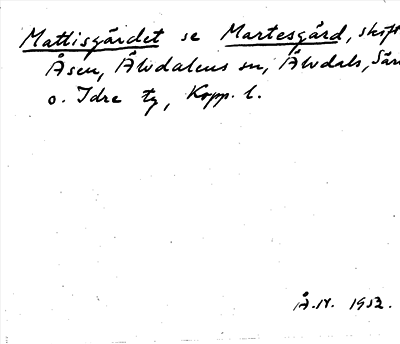 Mattisgärdet se Martesgård, skift
Åsen, Älvdalens sn, Älvdals, Sär
o. Idre tg, Kopp. l.
Å.N. 1952.